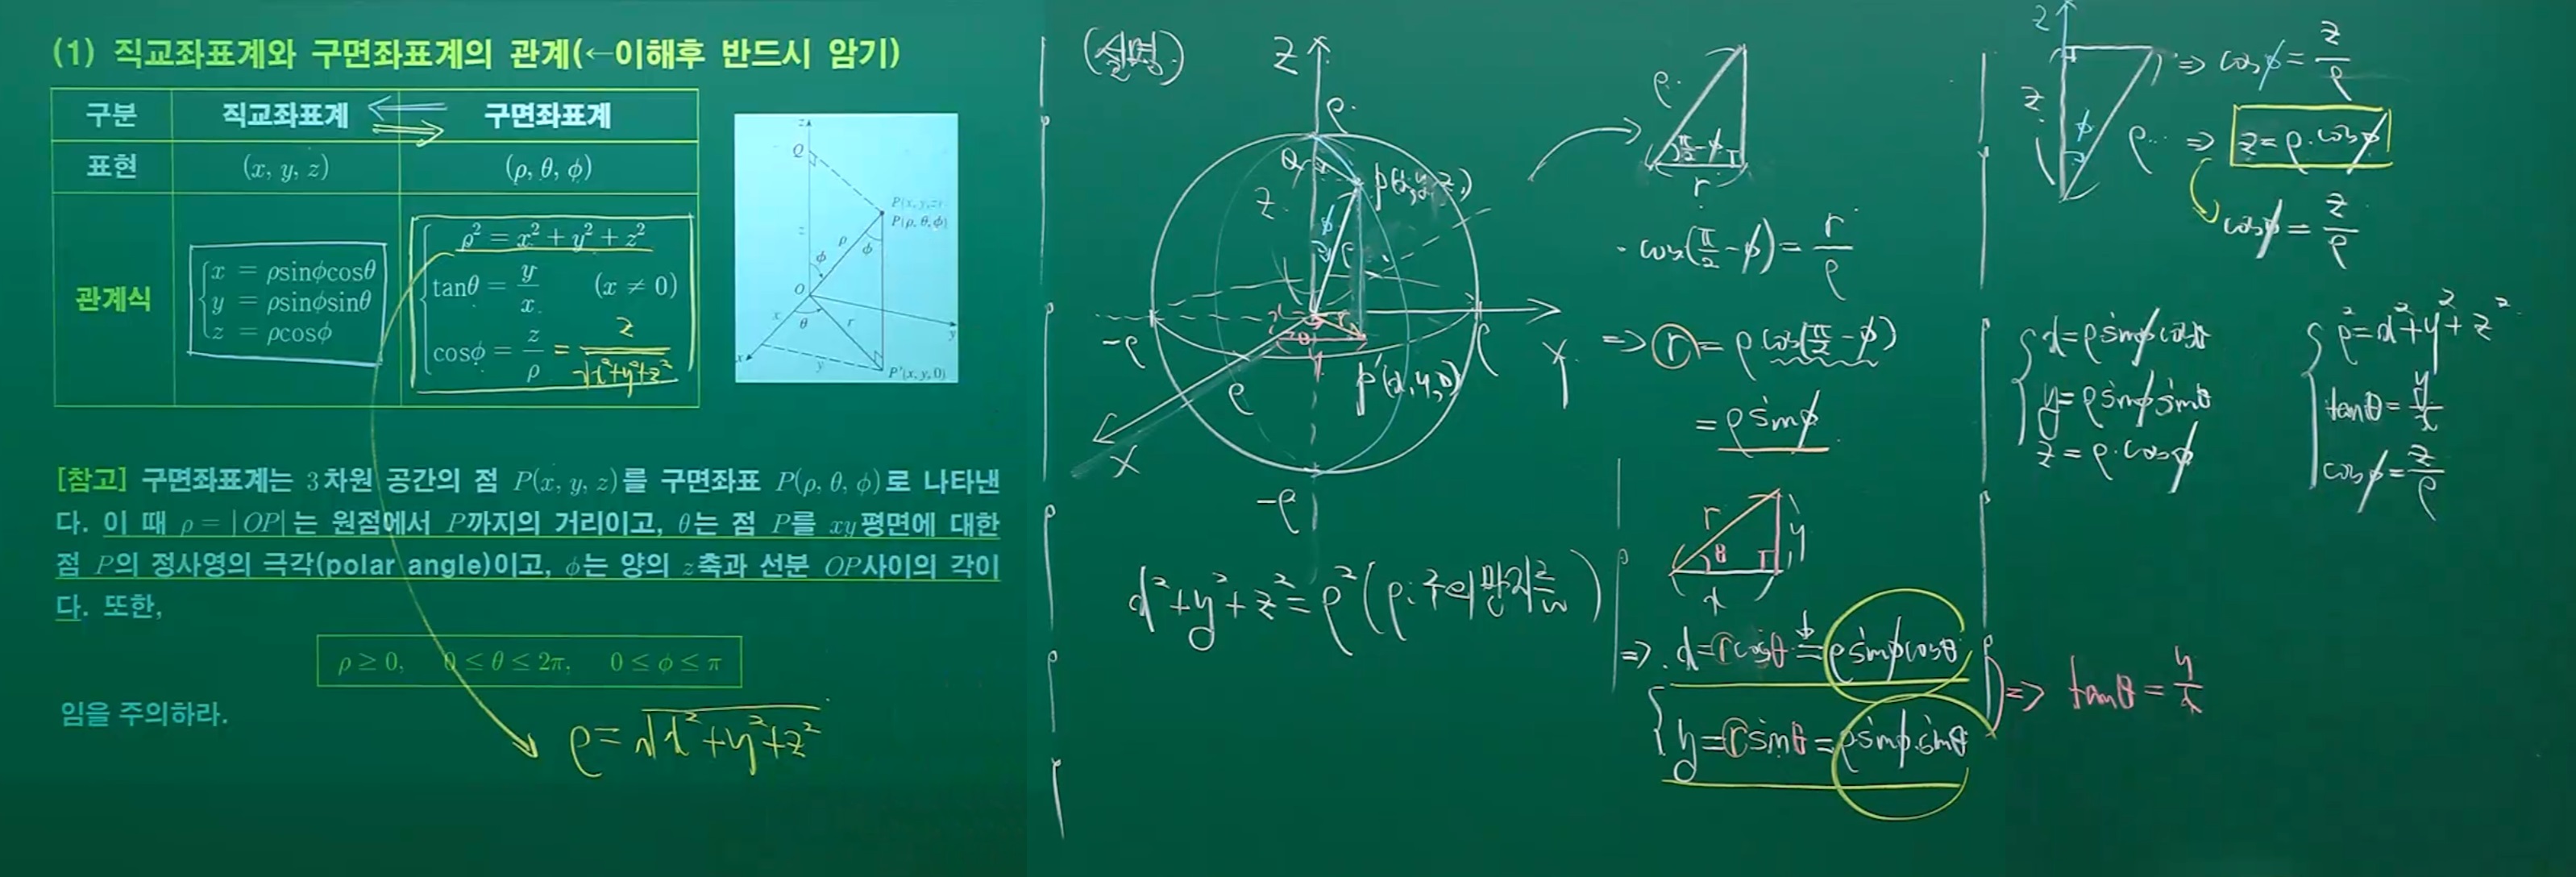 (1) 직교좌표계와 구면좌표계의 관계(←이해후 반드시 암기)
구분 직교좌표계 구면좌표계
표현 (x, y, z) (ρ, θ, ϕ)
관계식
x = ρsinϕcosθ
y = ρsinϕsinθ
z = ρcosϕ
ρ² = x² + y² + z²
tanθ = y/x (x ≠ 0)
cosϕ = z/ρ = z/√(x²+y²+z²)
z
Q
P(x, y, z)
P(ρ, θ, ϕ)
ρ
ϕ
z
ϕ
O
x
θ
r
y
x
y
P'(x, y, 0)
[참고] 구면좌표계는 3차원 공간의 점 P(x, y, z)를 구면좌표 P(ρ, θ, ϕ)로 나타낸
다. 이 때 ρ = |OP|는 원점에서 P까지의 거리이고, θ는 점 P를 xy평면에 대한
점 P의 정사영의 극각(polar angle)이고, ϕ는 양의 z축과 선분 OP사이의 각이
다. 또한,
ρ ≥ 0, 0 ≤ θ ≤ 2π, 0 ≤ ϕ ≤ π
임을 주의하라.
ρ = √(x²+y²+z²)
(설명)
Z
ρ
Q
P(x, y, z)
Z
ϕ
ρ
-ρ
ρ
Y
r
θ
y
P'(x, y, 0)
ρ
X
-ρ
x²+y²+z² = ρ² (ρ: 구의 반지름)
ρ
π/2-ϕ
r
cos(π/2-ϕ) = r/ρ
=> r = ρ cos(π/2-ϕ)
= ρ sinϕ
r
θ
y
x
=> x = rcosθ = ρsinϕcosθ
y = rsinθ = ρsinϕ·sinθ
=> tanθ = y/x
z
z
ϕ
ρ
=> cosϕ = z/ρ
=> z = ρ·cosϕ
cosϕ = z/ρ
x = ρsinϕcosθ
y = ρsinϕsinθ
z = ρ·cosϕ
ρ² = x²+y²+z²
tanθ = y/x
cosϕ = z/ρ